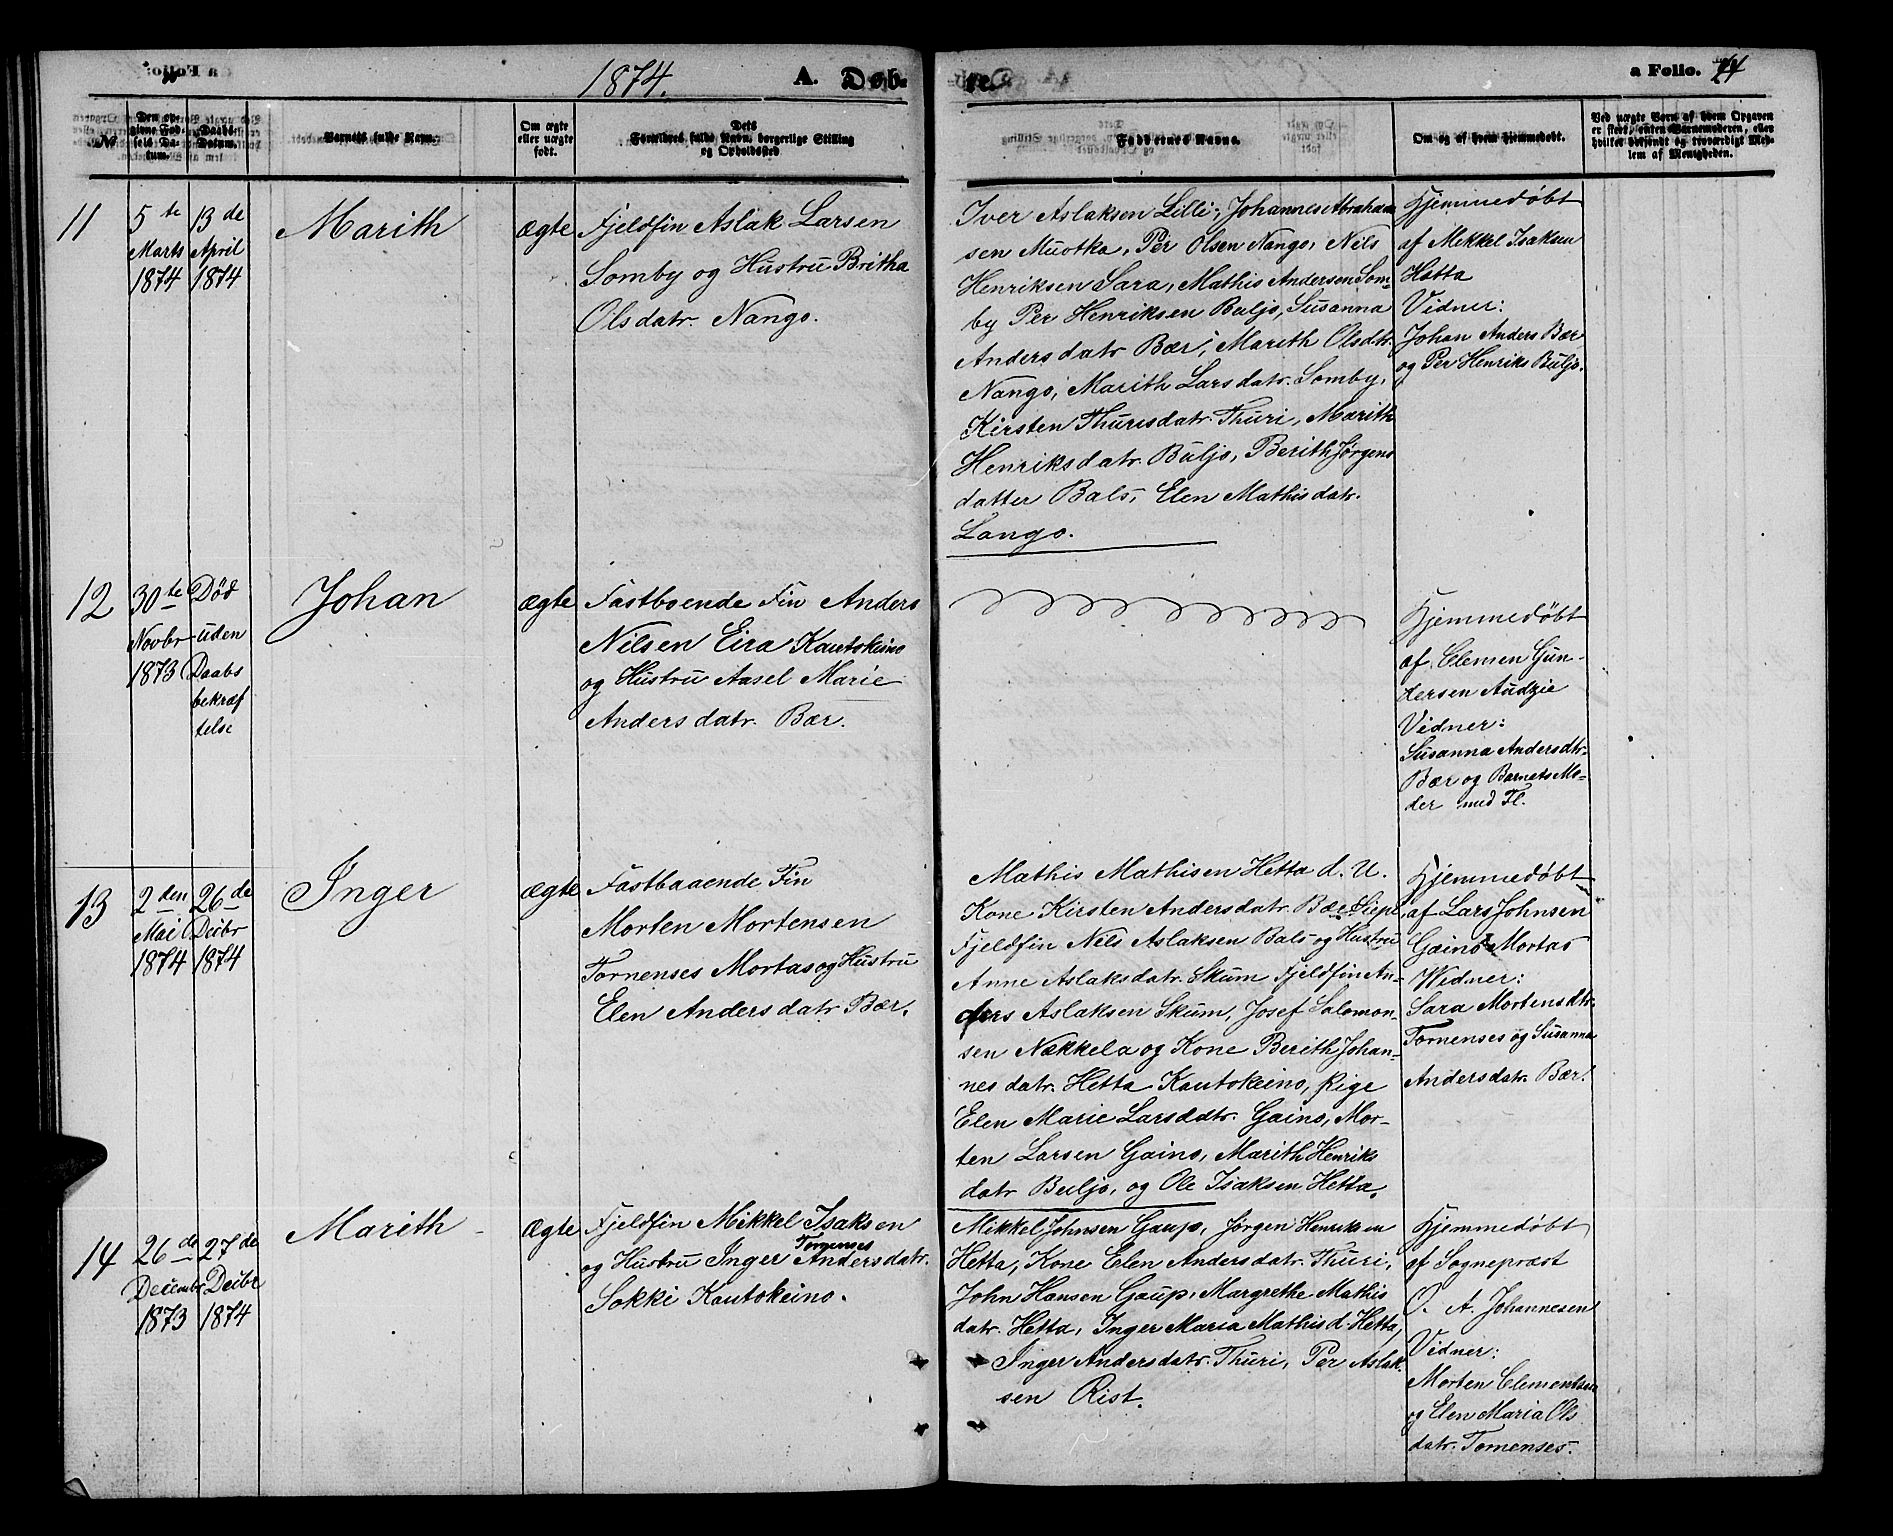 1874. A. Døb-
te.
a Folio. 44
№
Den op-
givne Fød-
sels Da-
tum.
Daabs-
Datum.
Barnets fulde Navn.
Om ægte
eller uægte
født.
Dets
Forældres fulde Navn, borgerlige Stilling
og Opholdssted.
Faddernes Navne.
Om og af hvem hjemmedøbt.
Ved uægte Børn af hvem Opgaven
er skeet, enten Barnemoderen, eller
hvilket bekjendt og troværdigt Med-
lem af Menigheden.
11
5te
Marts
1874
13de
April
1874
Marith
ægte
Fjeldfin Aslak Larsen
Somby og Hustru Britha
Olsdatr. Nango.
Iver Aslaksen Lilli, Johannes Abraham
sen Muotka, Per Olsen Nango, Nils
Henriksen Sara, Mathis Andersen Som-
by Per Henriksen Buljo, Susanna
Andersdatr Bær, Marith Olsdtr.
Nango, Marith Larsdatr. Somby,
Kirsten Thurisdatr. Thuri, Marith
Henriksdatr. Buljo, Berith Jørgens
datter Bals, Elen Mathisdatr.
Lango.
Hjemmedøbt
af Mikkel Isaksen
Hætta
Vidner:
Johan Anders Bær
og Per Henriks Buljo.
12
30te
Novbr
1873
Død
uden
Daabs
bekræf
telse
Johan
ægte
Fastboende Fin Anders
Nilsen Eira Kautokeino
og Hustru Aasel Marie
Andersdatr. Bær.
Hjemmedøbt
af Clemen Gun-
dersen Audzie
Vidner:
Susanna Andersdtr.
Bær og Barnets Mo-
der med Fl.
13
2den
Mai
1874
26de
Decbr
1874
Inger
ægte
Fastboaende Fin
Morten Mortensen
Tornenses Mortas og Hustru
Elen Andersdatr Bær.
Mathis Mathisen Hetta d. U.
Kone Kirsten Andersdatr. Bær Siepe
Fjeldfin Nils Aslaksen Bals og Hustru
Anne Aslaksdatr. Skum Fjeldfin An-
ders Aslaksen Skum, Josef Salomon-
sen Nækkela og Kone Berith Johan-
nesdatr. Hetta Kautokeino, Pige
Elen Marie Larsddtr. Gaino, Mor-
ten Larsen Gaino, Marith Henriks
datr Buljo, og Ole Isaksen Hetta.
Hjemmedøbt
af Lars Johnsen
Gaino Mortas
Widner:
Sara Mortensdtr.
Tornenses og Susanna
Andersdatr. Bær.
14
26de
Decembr
1873
27de
Decbr
1874
Marith
Ægte
Fjeldfin Mikkel Isaksen
Tornenses
og Hustru Inger Andersdatr.
Sokki Kautokeino.
Mikkel Johnsen Gaup, Jørgen Henriksen
Hetta, Kone Elen Andersdatr. Thuri,
John Hansen Gaup, Margrethe Mathis
datr. Hetta, Inger Maria Mathisd. Hetta,
Inger Andersdatr. Thuri, Per Aslak-
sen Rist.
Hjemmedøbt
af Sognepræst
O. A. Johannesen
Vidner:
Morten Clementsen
og Elen Maria Ols
datr. Tornenses.